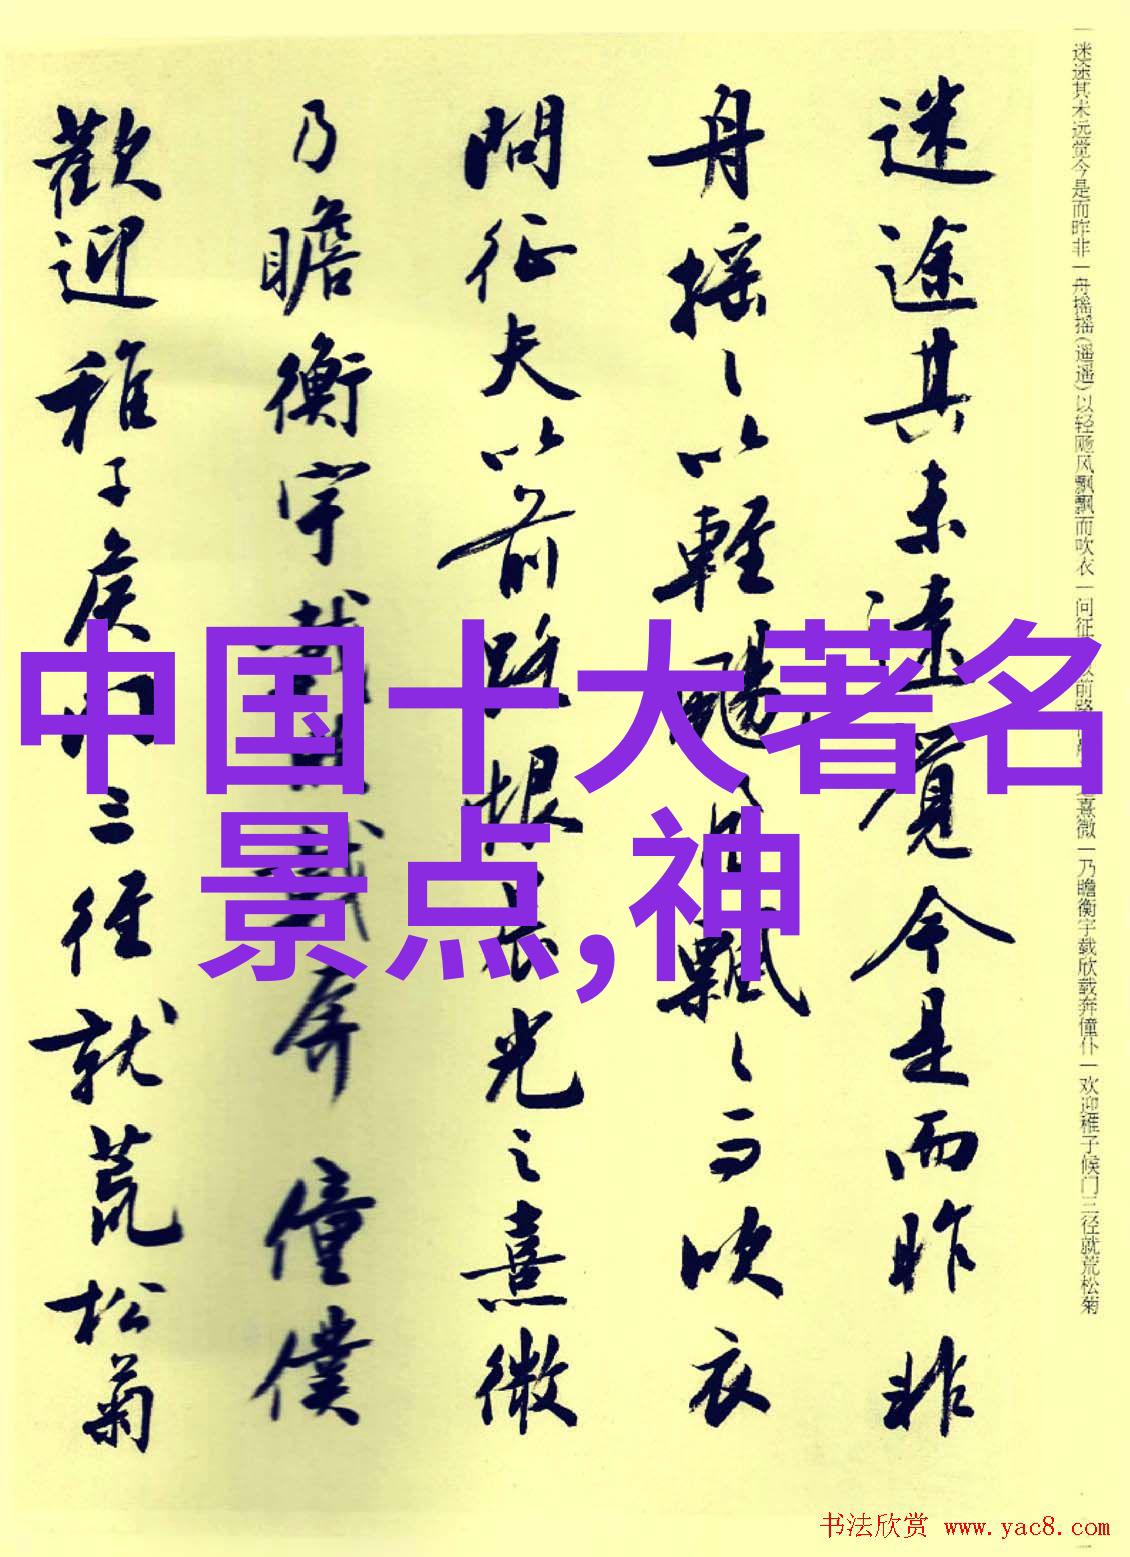 迷途其未远觉今是而昨非一舟摇摇(遥遥)以轻飏风飘飘而吹衣一问征以前路熹微一乃瞻衡宇载欣载奔僮仆一欢迎稚子候门三径就荒松菊
迷途其未遠覺今是而昨非
舟摇〻以輕颺風飄〻而吹衣
問征夫以前路恨晨光之熹微
乃瞻衡宇載欣載奔僮僕
歡迎稚子侯門三徑就荒松菊
中国十大著名
景点,神
书法欣赏 www.yac8.com